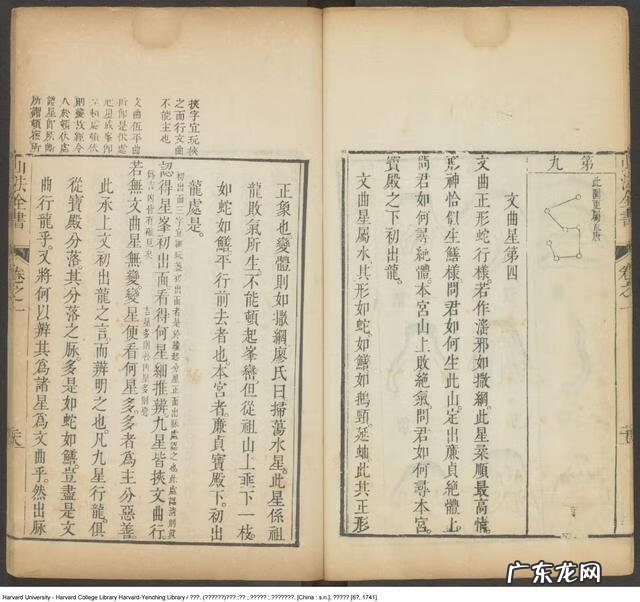 第九
文曲星第四
文曲正形蛇行樣。若作淫邪如撒網此星柔順最高情
形神恰似生鱔樣問君如何生此山定出廉貞絕體上
問君如何尋絕體。本宮山上敗絕氣問君如何尋本宮。
寶殿之下初出龍。
文曲星屬水其形如蛇如鱔如鵝頸。延蚰此其正形
正象也變體則如撒網廖氏曰掃蕩水星。此星係祖
龍敗氣所生不能頓起峯巒但從祖山上垂下一枝。
如蛇如鱔平行前去者也本宮者廉貞寶殿下。初出
龍處是。
挾字宜玩挾
之面行文曲
不能主也
認得星峯初出面。看得何星細推辨九星皆挾文曲行
吉星多則吉凶星多則惡
若無文曲星無變變星便看何星多多者為主分惡善
此承上文初出龍之言而辨明之也。凡九星行龍。俱
從寶殿分落其分落之脉多是如蛇如鱔豈盡是文
曲行龍乎。又將何以辨其為諸星為文曲乎。然出脉
山法全書
卷之一
Harvard University - Harvard College Library Harvard-Yenching Library / ???. (??????)??? ;?? ; ????? ; ???????. [China : s.n.], ????? [6?, 1741].
广东龙网